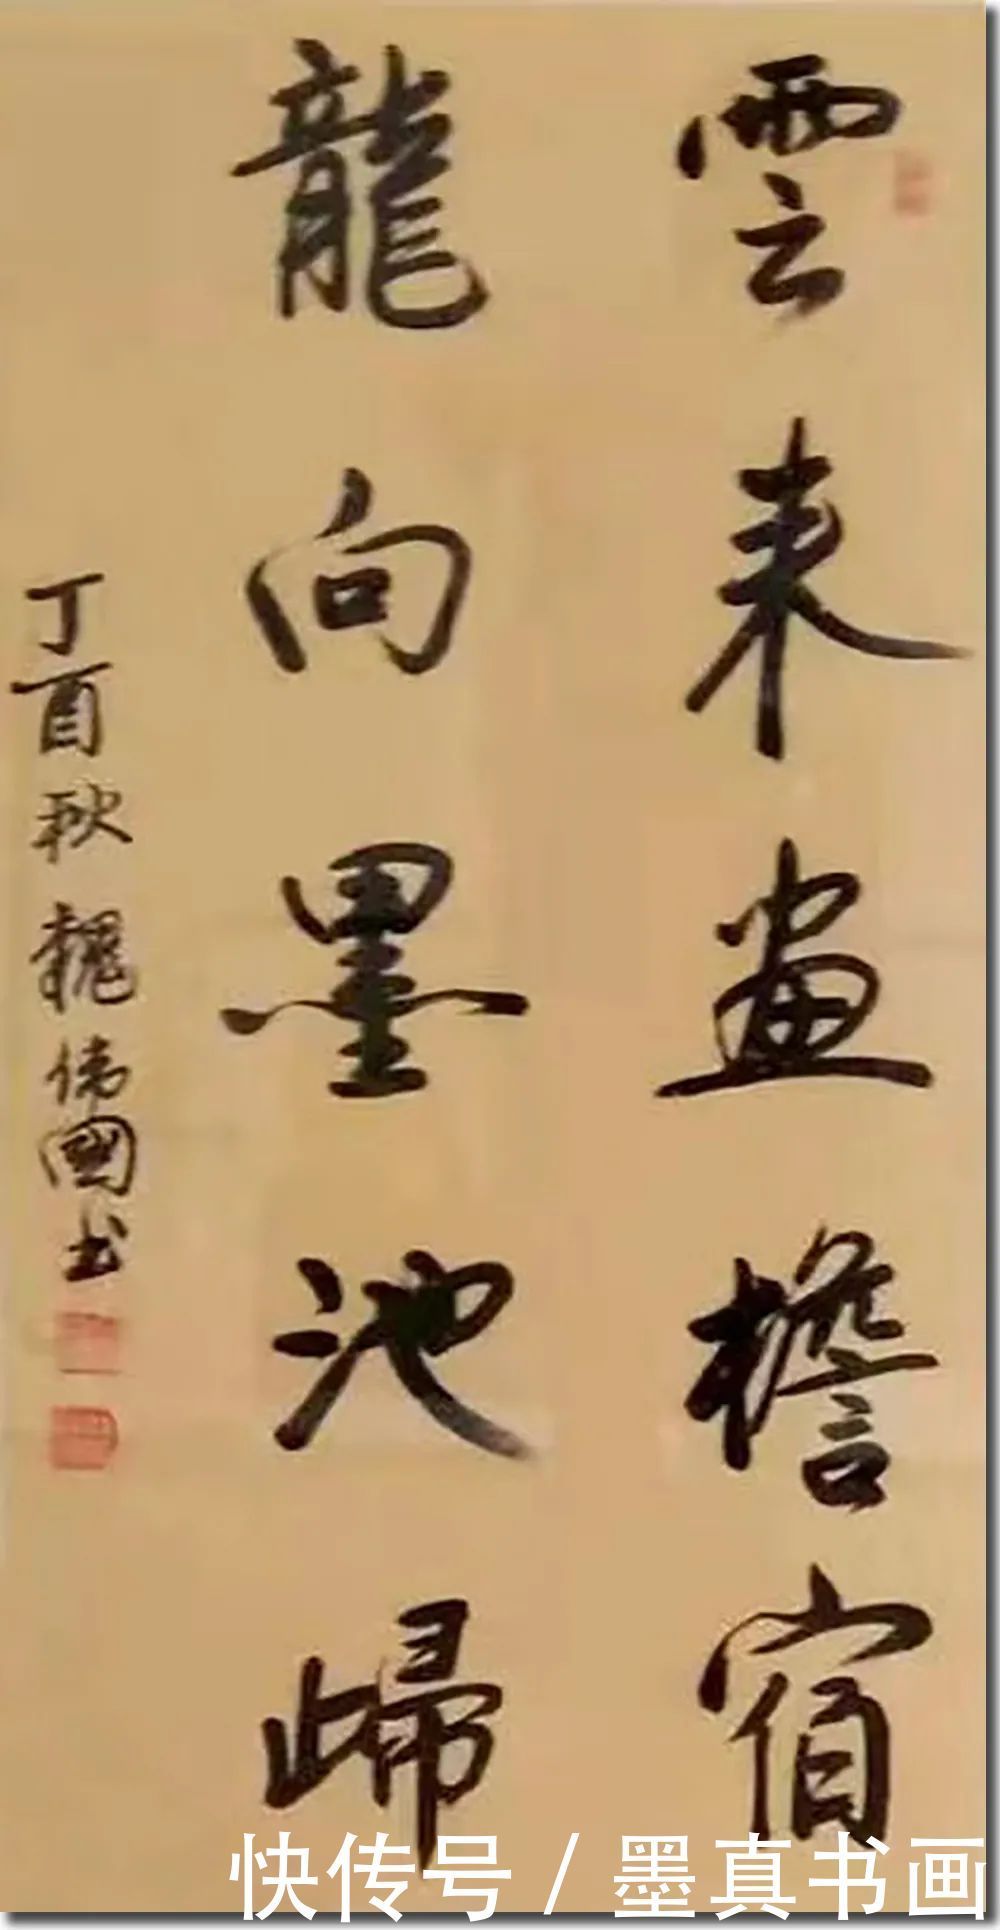 雲来畫檐宿
龍向墨池歸
丁酉秋魏偉國书
快传号 / 墨真书画